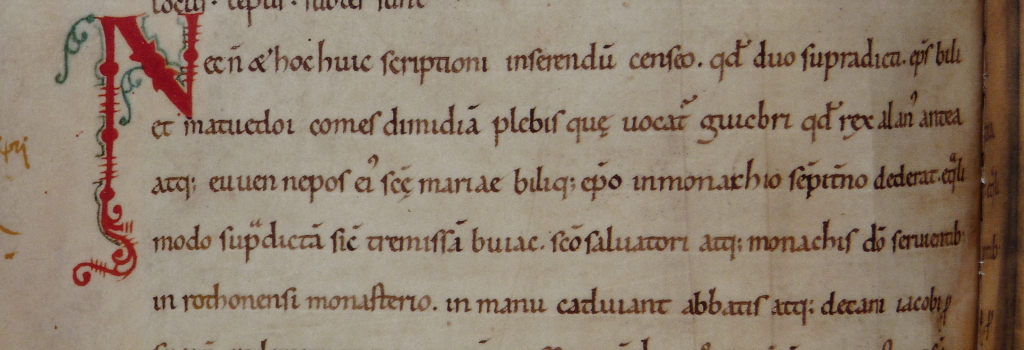 locus. tepus. subter sunt
Necn̄ & hoc huic scriptioni inserendū censeo. qd̄ duo supradicti. ep̄s bili
et matuedoi comes dimidiā plebis quę uocat̄ guicbri qd̄ rex alanꝰ antea
atq; euuen nepos eiꝰ scę mariae biliq; ep̄o inmonarchio sēpit̄no dederat. eq̄li
modo sup̄dictā sic̄ tremissā buiac. scō saluatori atq; monachis dō seruientib;
in rothonensi monasterio. in manu catluiant abbatis atq; decani iacobi ꝑ